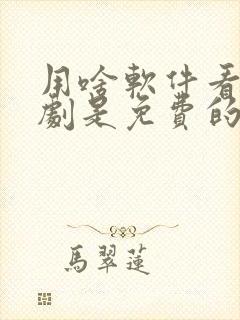 用啥軟件看
劇是免費的
馬翠蓮